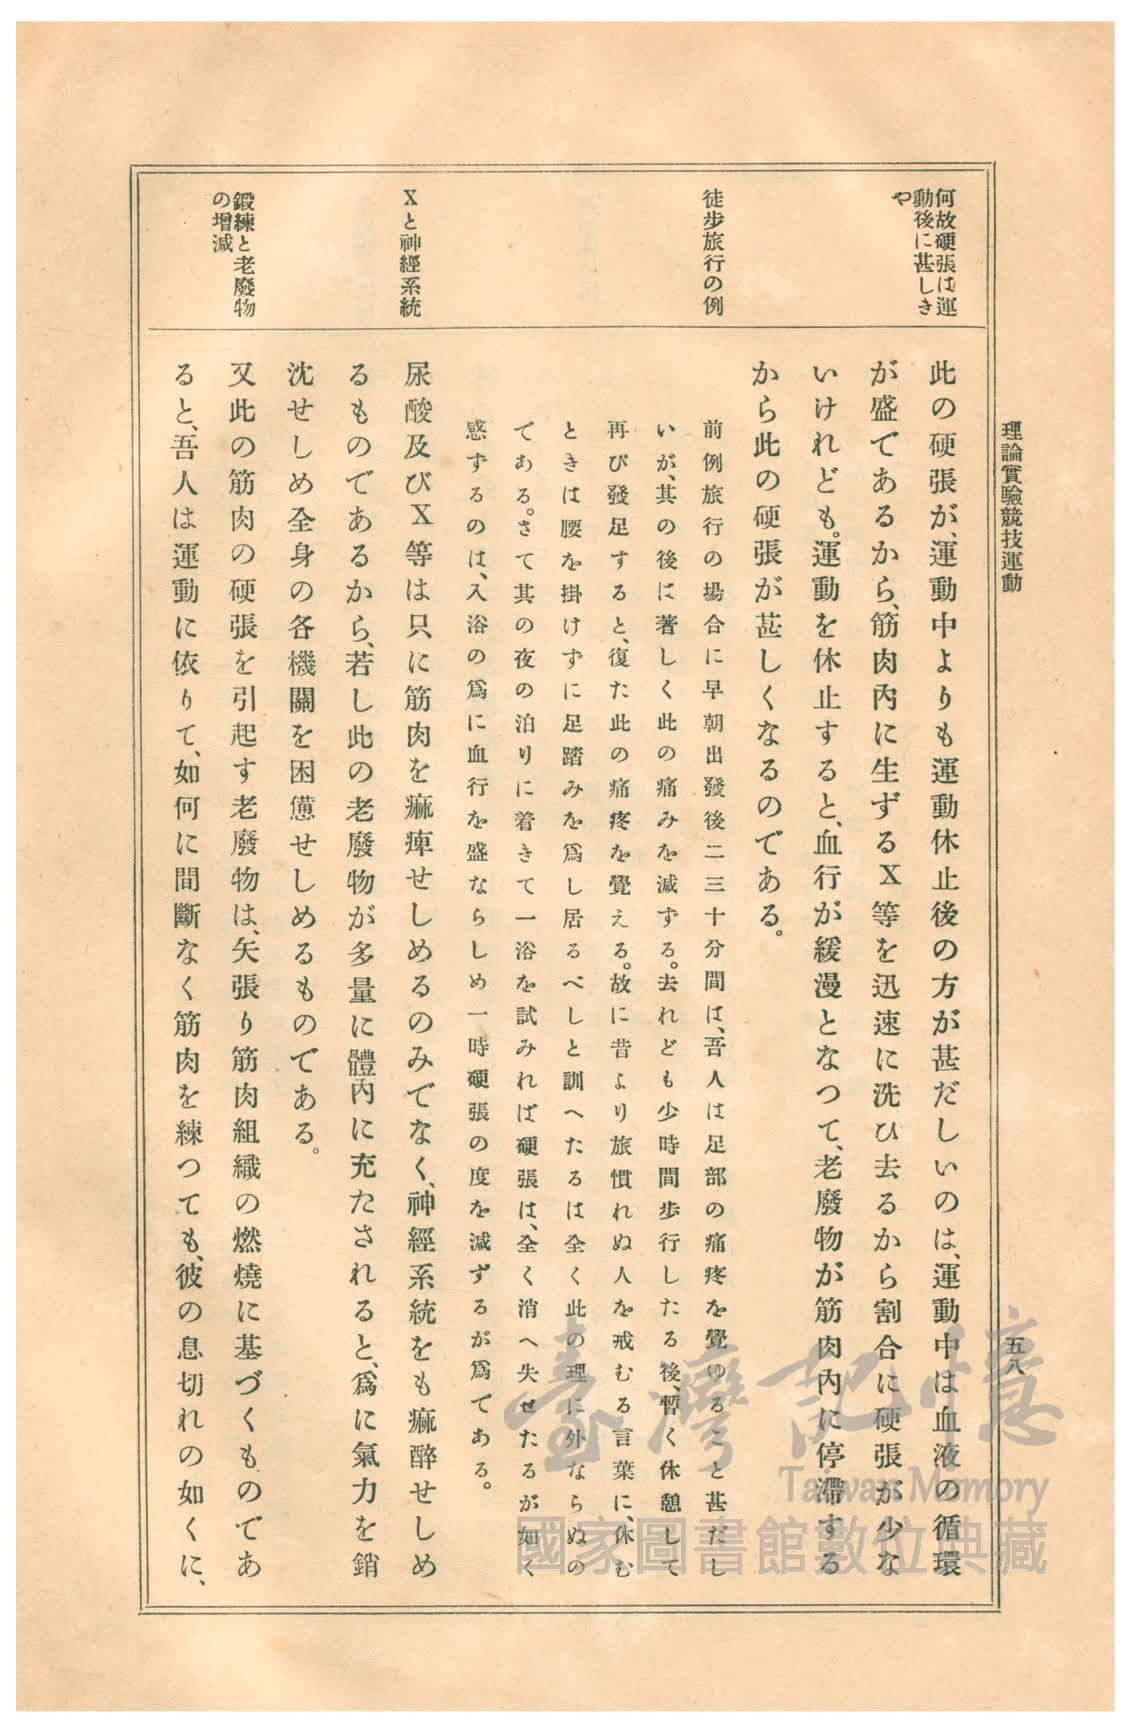 理論實驗競技運動
五八
何故硬張は運
動後に甚しき
や
徒步旅行の例
Xと神經系統
鍛練と老廢物
の增減
此の硬張が、運動中よりも運動休止後の方が甚だしいのは、運動中は血液の循環
が盛であるから、筋肉內に生ずるX等を迅速に洗ひ去るから割合に硬張が少な
いけれども。運動を休止すると、血行が緩漫となつて、老廢物が筋肉內に停滯する
から此の硬張が甚しくなるのである。
前例旅行の場合に早朝出發後二三十分間は、吾人は足部の痛疼を覺ゆること甚だし
いが、其の後に著しく此の痛みを減ずる。去れども少時間步行したる後、暫く休憩して
再び發足すると、復た此の痛疼を覺える。故に昔より旅慣れぬ人を戒むる言葉に、休む
ときは腰を掛けずに足踏みを爲し居るべしと訓へたるは全く此の理に外ならぬの
である。さて其の夜の泊りに着きて一浴を試みれば硬張は、全く消へ失せたるが如く
感ずるのは、入浴の爲に血行を盛ならしめ一時硬張の度を減ずるが爲である。
尿酸及びX等は只に筋肉を痲痺せしめるのみでなく、神經系統をも痲醉せしめ
るものであるから、若し此の老廢物が多量に體內に充たされると、爲に氣力を銷
沈せしめ全身の各機關を困憊せしめるものである。
又此の筋肉の硬張を引起す老廢物は、矢張り筋肉組織の燃燒に基づくものであ
ると、吾人は運動に依りて、如何に間斷なく筋肉を練つても、彼の息切れの如くに、
臺灣記憶
Taiwan Memory
國家圖書館數位典藏